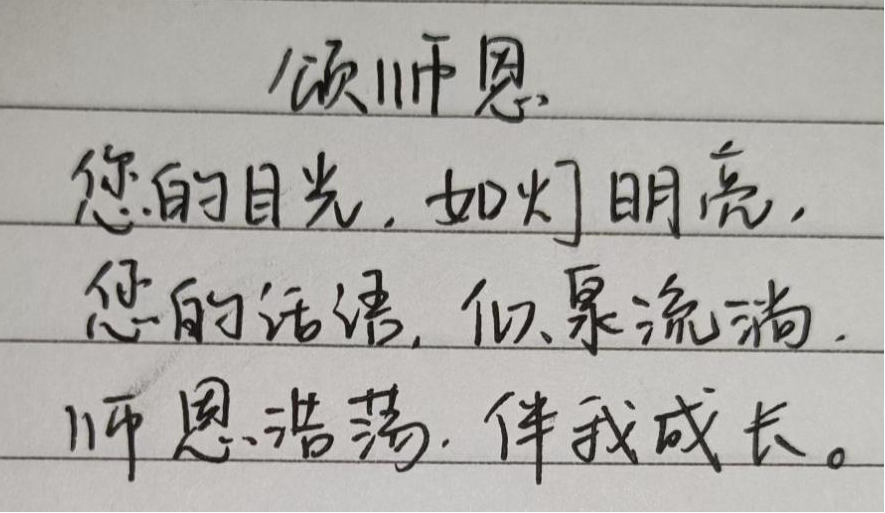 颂师恩
您的目光，如灯明亮，
您的话语，似泉流淌.
师恩浩荡.伴我成长。